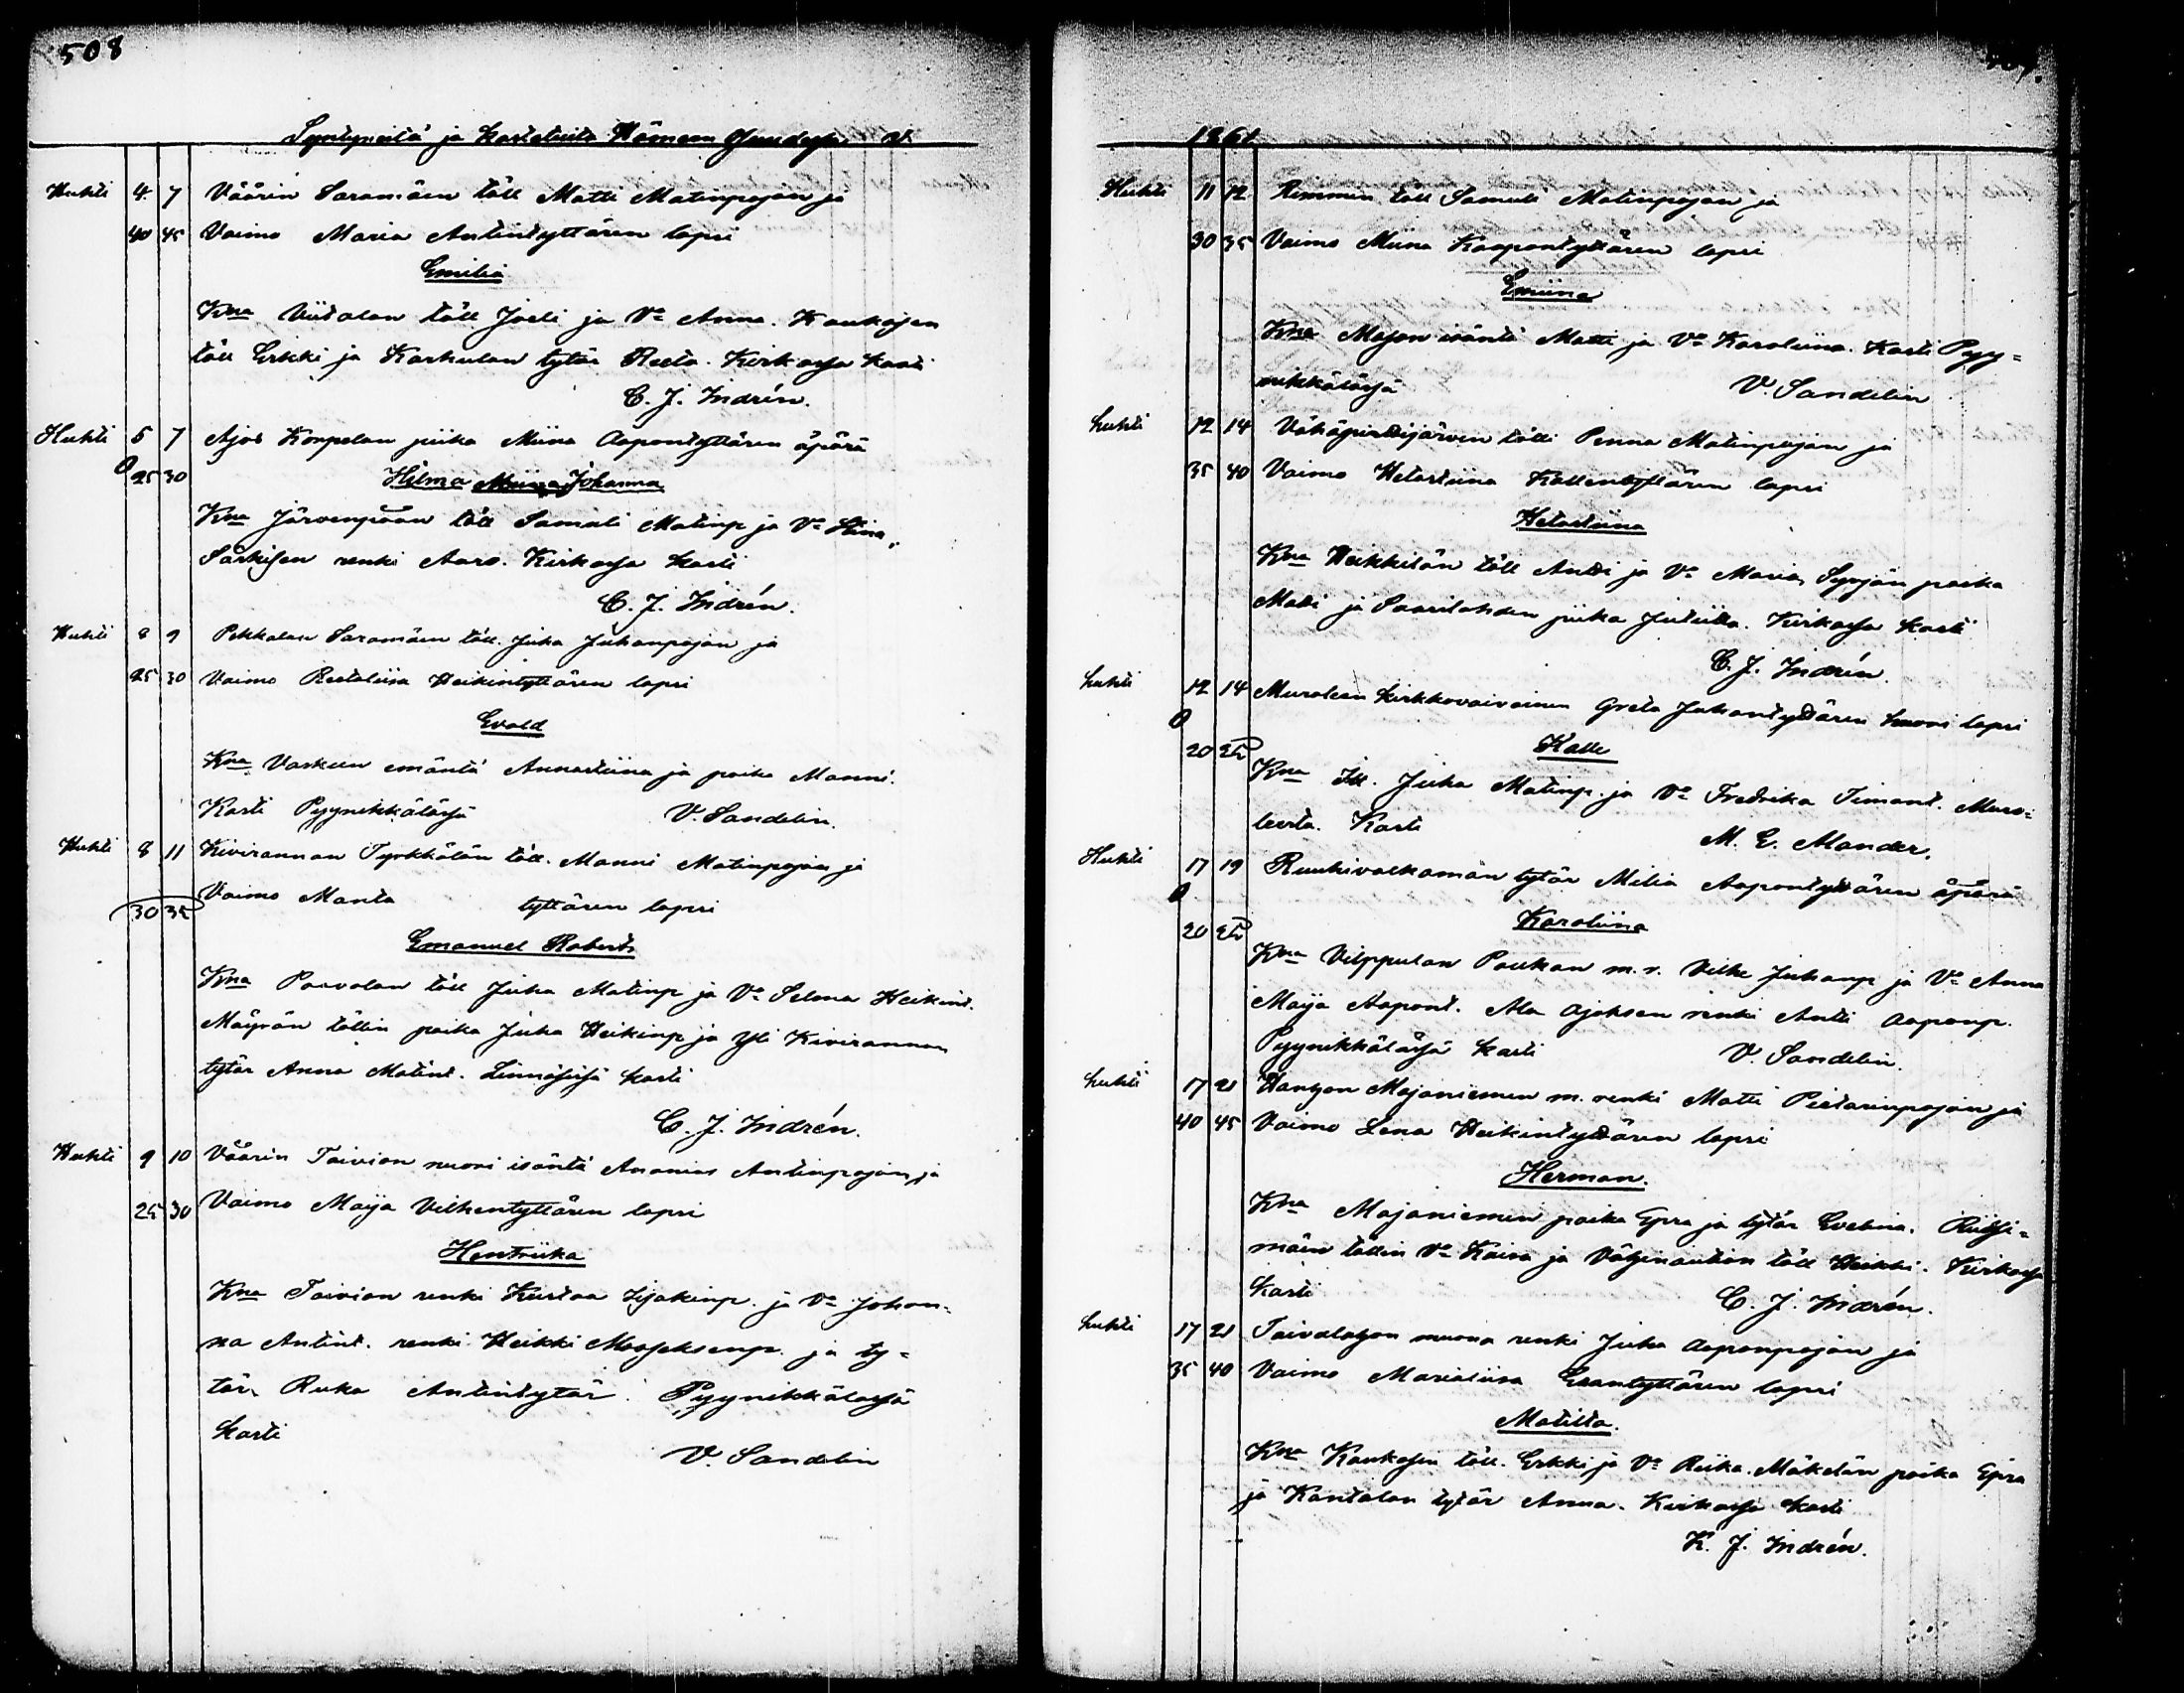 508
Syntyneitä ja kastetuita Hämeen v.
Huhti 4 7 Väärin Saramäen töll Matti Matinpojan ja
40 45 Vaimo Maria Antintyttären lapsi
Emilia
Kna Viitalan töll Joeli ja Va Anna. Kaukasen
töll Erkki ja Karhulan tytär Reeta. Kirkossa kasti
C. J. Indrén.
Huhti 5 7 Ajos Konpelan piika Miina Aapontyttären äpärä
25 30 Hilma Miina Johanna
Kna Järvenpään töll Samuli Matinp ja Va Stina,
Särkisen renki Aaro. Kirkossa kasti
C. J. Indrén.
Huhti 8 9 Pekkalan Saramäen töll. Juha Juhanpojan ja
25 30 Vaimo Reetaliisa Heikintyttären lapsi
Evald
Kna Vaskun emäntä Annastiina ja poika Manni.
Kasti Pyynikkälässä V. Sandelin.
Huhti 8 11 Kivirannan Tyrkkölän töll. Manni Matinpojan ja
30 35 Vaimo Manta tyttären lapsi
Emanuel Robert
Kna Paavolan töll Juha Matinp ja Va Selma Heikint.
Mäyrän töllin poika Juha Heikinp ja Yli Kivirannan
tytär Anna Matint. kasti
C. J. Indrén.
Huhti 9 10 Väärin Toivion nuori isäntä Ananias Antinpojan ja
25 30 Vaimo Maija Vilhentyttären lapsi
Hentriika
Kna Toivion renki Kustaa ja Va Johan-
na Antint. renki Heikki Mooseksenp. ja ty-
tär Ruka Antintytär. Pyynikkälässä
kasti
V. Sandelin
1861
Huhti 11 12 Rimmin töll Samuli Matinpojan ja
30 35 Vaimo Miina Kaapontyttären lapsi
Emiina
Kna Mason isäntä Matti ja Va Karoliina. Kasti Pyy-
nikkälässä V. Sandelin
huhti 12 14 töll Penna Matinpojan ja
35 40 Vaimo Hetastiina Kallentyttären lapsi
Hetastiina
Kna Heikkilän töll Antti ja Va Maria, Syrjän poika
Matti ja Saarilahden piika Justiina. Kirkossa kasti
C. J. Indrén.
huhti 12 14 Muroleen kirkkovaivainen Greta Juhantyttären huori lapsi
20 25 Kalle
Kna Itt. Juha Matinp. ja Va Fredrika Timant. Muro-
leesta. Kasti M. E. Mander.
Huhti 17 19 Ruuhivalkaman tytär Milia Aapontyttären äpärä
20 25 Karoliina
Kna Vilppulan Paukan m. r. Vilhe Juhanp ja Va Anna
Maija Aapont. Ala Ajoksen renki Antti Aaponp.
Pyynikkälässä kasti V. Sandelin.
huhti 17 21 Majaniemen m. renki Matti Pietarinpojan ja
40 45 Vaimo Lena Heikintyttären lapsi
Herman.
Kna Majaniemen poika Epra ja tytär Evelina.
mäen töllin Va Kaisa ja töll Heikki. Kirkossa
kasti C. J. Indrén.
huhti 17 21 muona renki Juha Aaponpojan ja
35 40 Vaimo Marialiisa Esantyttären lapsi
Matilta.
Kna Kaukasen töll. Erkki ja Va Reika. Mäkelän poika Epra
ja Kantolan tytär Anna. Kirkossa kasti
K. J. Indrén.